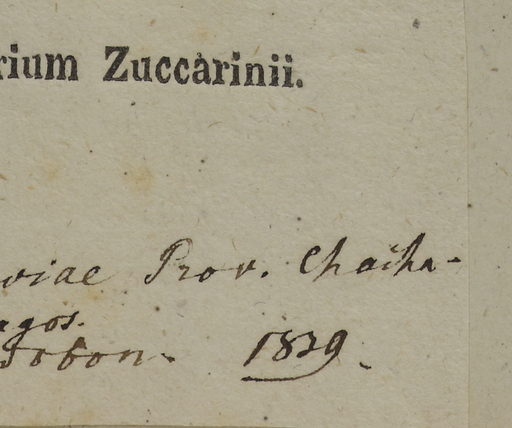 rium Zuccarinii.
viae Prov. Chacha-
agos.
Tobon. 1839.